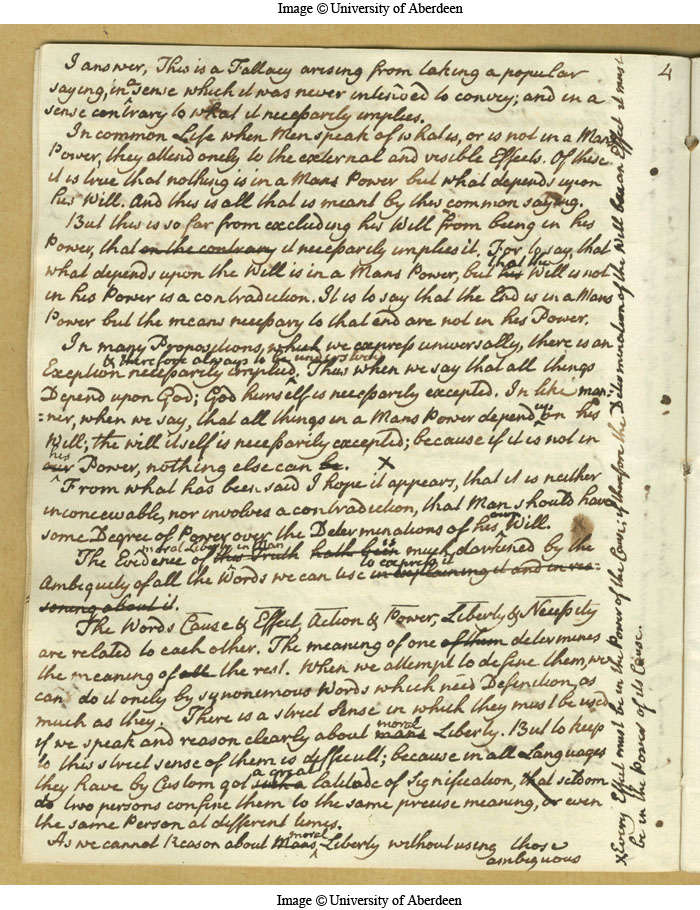 Image © University of Aberdeen
4
I answer, This is a Fallacy arising from taking a popular
saying, in a sense which it was never intended to convey; and in a
sense contrary to what it necessarily implies.
In common Life when Men speak of what is, or is not in a Mans
Power, they attend onely to the external and visible Effects. Of these
it is true that nothing is in a Mans Power but what depends upon
his Will. And this is all that is meant by this common saying.
But this is so far from excluding his Will from being in his
Power, that on the contrary it necessarily implies it. For to say, that
what depends upon the Will is in a Mans Power, but that the his Will is not
in his Power is a contradiction. It is to say that the End is in a Mans
Power but the means necessary to that end are not in his Power.
In many Propositions, which we express universally, there is an
& therefore always to be understood
Exception necessarily implied. Thus when we say that all things
Depend upon God; God himself is necessarily excepted. In like man=
=ner, when we say, that all things in a Mans Power depend on his
Will; the will itself is necessarily excepted; because if it is not in
his our Power, nothing else can be. X
From what has been said I hope it appears, that it is neither
inconceivable, nor involves a contradiction, that Man should have
some Degree of Power over the Determinations of his own Will.
The Evidence of moral Liberty in Man this Truth hath been is much darkened by the
Ambiguity of all the Words we can use to express it in explaining it and in rea=
soning about it.
The Words Cause & Effect, Action & Power, Liberty & Necessity
are related to each other. The meaning of one of them determines
the meaning of all the rest. When we attempt to define them, we
can do it onely by synonemous Words which need Definition as
much as they. There is a strict Sense in which they must be used
if we speak and reason clearly about moral mans Liberty. But to keep
to this strict sense of them is difficult; because in all Languages
they have by Custom got a great such a latitude of signification, that seldom
do two persons confine them to the same precise meaning, or even
the same Person at different times.
As we cannot Reason about Mans moral Liberty without using those
ambiguous
X Every Effect must be in the Power of the Cause; if therefore the Determination of the Will be an Effect it must
be in the Power of its Cause.
Image © University of Aberdeen